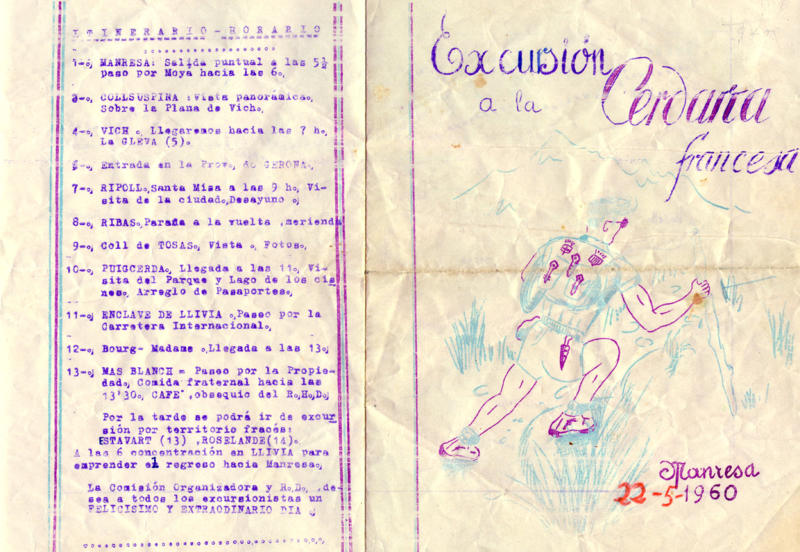 ITINERARIO-HORARIO
1-o, MANRESA: Salida puntual a las 5½
paso por Moya hacia las 6o,
3-o, COLLSUSPINA :Vista panorámica,
Sobre la Plana de Vich,
4-o, VICH o, Llegaremos hacia las 7 h,
La GLEVA (5)o
6-o, Entrada en la Prov, de GERONA,
7-o, RIPOLL,Santa Misa a las 9 h, Vi-
sita de la ciudad,Desayuno o,
8-o, RIBAS,Parada a la vuelta ,merienda
9-o, Coll de TOSAS, Vista o, Fotos,
10-o, PUIGCERDA, Llegada a las 11, Vi-
sita del Parque y Lago de los cis
nes, Arreglo de Pasaportes,
11-o, ENCLAVE DE LLIVIA o,Paseo por la
Carretera Internacional,
12-o, Bourg- Madame o,Llegada a las 13,
13-o, MAS BLANCH = Paseo por la Propie-
dad, Comida fraternal hacia las
13'30, CAFE' ,obsequio del R,H,D,
Por la tarde se podrá ir de excur
sión por territorio fracés:
ESTAVART (13) ,ROSELANDE(14)o
A las 6 concentración en LLIVIA para
emprender el regreso hacia Manresa,
La Comisión Organizadora y R,D, ,de-
sea a todos los excursionistas un
FELICISIMO Y EXTRAODINARIO DIA o
Excursión
a la
Cerdaña
francesa
Manresa
22-5-1960